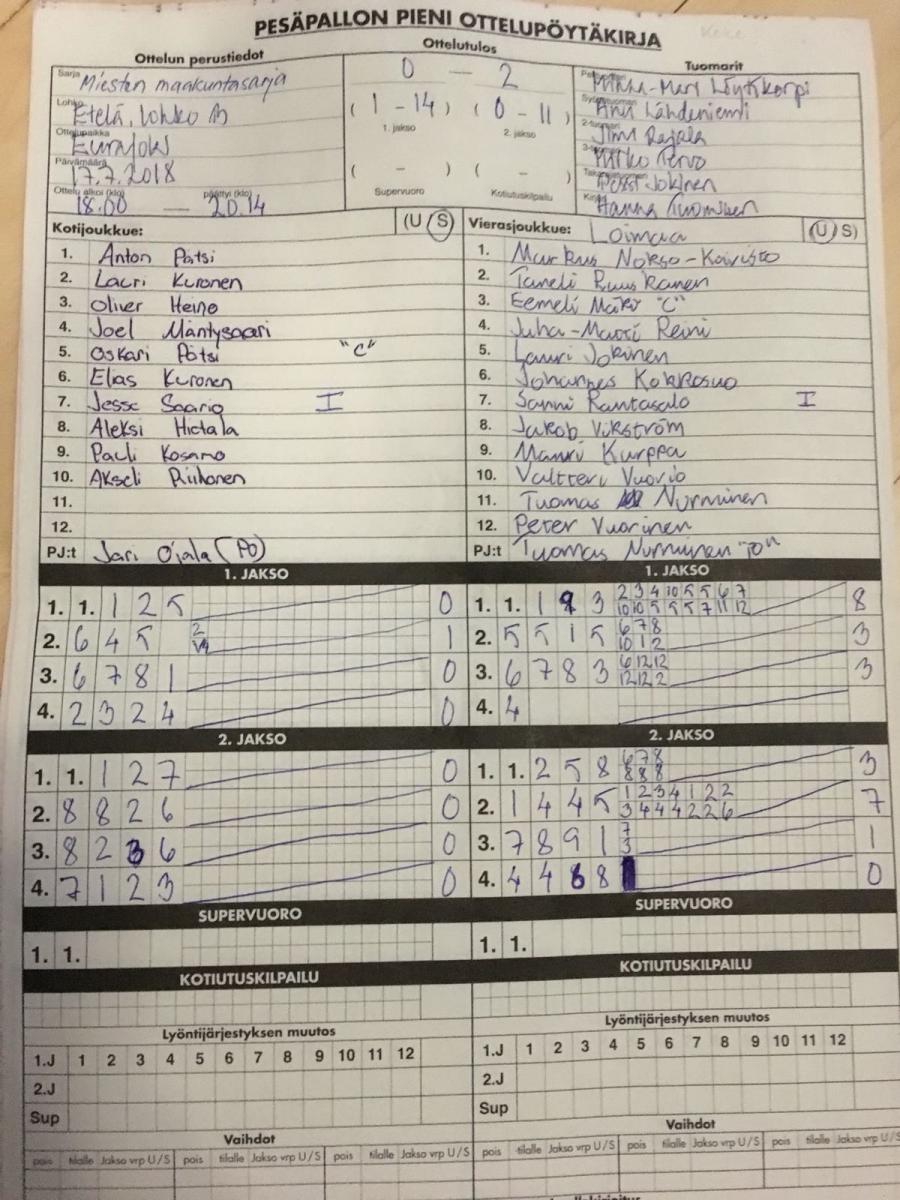 PESÄPALLON PIENI OTTELUPÖYTÄKIRJA
Ottelun perustiedot
Ottelutulos
Tuomarit
Sarja
Miesten maakuntasarja
0 — 2
Lohko
Etelä, lohko
(1 - 14) (0 - 11)
1. jakso 2. jakso
Lähdeniemi
Ottelupaikka
Eurajoki
2-tuomari
Rajala
Päivämäärä
17.7.2018
Tervo
( - ) ( - )
Supervuoro Kotiutuskilpailu
Jokinen
Ottelu alkoi (klo) päättyi (klo)
18:00 — 20.14
Hanna Tuominen
Kotijoukkue: (U S)
1. Anton Pätsi
2. Lauri Kuronen
3. Oliver Heino
4. Joel Mäntysaari
5. Oskari Pätsi "C"
6. Elias Kuronen
7. Jesse Saario I
8. Aleksi Hietala
9. Pauli Kosamo
10. Akseli Riihonen
11.
12.
PJ:t Jari Ojala (PO)
Vierasjoukkue: Loimaa (U S)
1. Markus Nokso-Koivisto
2. Taneli Ruuskanen
3. Eemeli Mäki "C"
4. Juha-Matti Reini
5. Lauri Jokinen
6. Johannes Kokkosuo
7. Sanni Rantasalo I
8. Jakob Vikström
9. Manri Kurppa
10. Valtteri Vuorio
11. Tuomas Nurminen
12. Peter Vuorinen
PJ:t Tuomas Nurminen "PO"
1. JAKSO
1. 1. 1 2 5 0
2. 6 4 5 2 1
3. 6 7 8 1 0
4. 2 3 2 4 0
2. JAKSO
1. 1. 1 2 7 0
2. 8 8 2 6 0
3. 8 2 3 6 0
4. 7 1 2 3 0
SUPERVUORO
1. 1.
KOTIUTUSKILPAILU
Lyöntijärjestyksen muutos
1.J 1 2 3 4 5 6 7 8 9 10 11 12
2.J
Sup
Vaihdot
pois tilalle Jakso vrp U/S pois tilalle Jakso vrp U/S pois tilalle Jakso vrp U/S
1. JAKSO
1. 1. 1 9 3 2 3 4 10 5 5 6 7 8
10 10 5 5 5 7 11 12
2. 5 5 1 5 6 7 8 3
10 1 2
3. 6 7 8 3 6 12 12 3
12 12 2
4. 4
2. JAKSO
1. 1. 2 5 8 6 7 8 3
8 8 8
2. 1 4 4 5 1 2 3 4 1 2 2 7
3 4 4 4 2 2 6
3. 7 8 9 1 7 1
3
4. 4 4 6 8 0
SUPERVUORO
1. 1.
KOTIUTUSKILPAILU
Lyöntijärjestyksen muutos
1.J 1 2 3 4 5 6 7 8 9 10 11 12
2.J
Sup
Vaihdot
pois tilalle Jakso vrp U/S pois tilalle Jakso vrp U/S pois tilalle Jakso vrp U/S